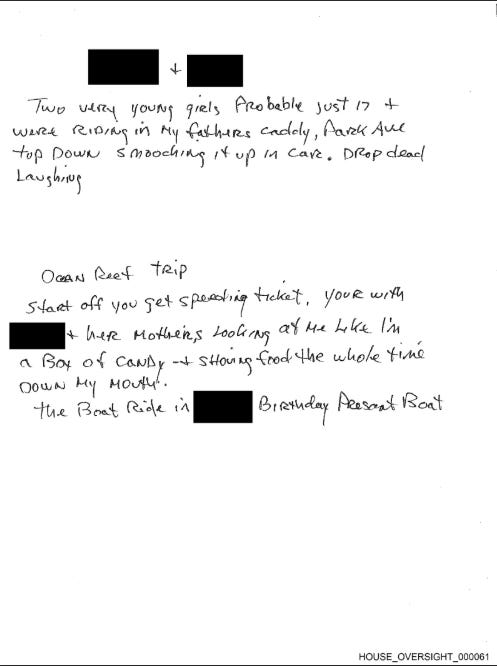 +
Two very young girls Probable just 17 +
were Riding in My fathers caddy, Park Ave
top Down smooching it up in car. Drop dead
Laughing
Ocean Reef trip
start off you get speeding ticket, your with
+ her Mothers Looking at Me Like I'm
a Box of Candy → shoving food the whole time
Down My Mouth.
the Boat Ride in Birthday Boat
HOUSE_OVERSIGHT_000061